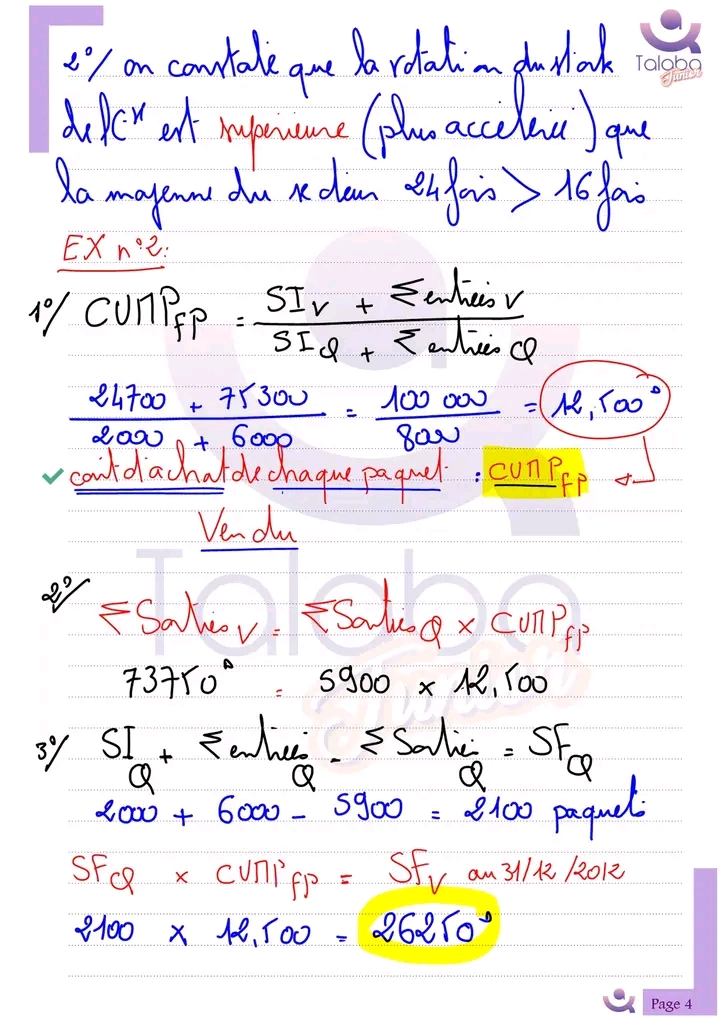 2°/ on constate que la rotation du stock
Talaba
Junior
de l'Ese est supérieure (plus accélérée) que
la moyenne du secteur 24 fois > 16 fois
EX n°2:
1°/ CUMP FP = SI V + Σ entrées V
SI Q + Σ entrées Q
24700 + 75300 = 100 000 = 12,500 D
2000 + 6000 8000
✓ coût d'achat de chaque paquet : CUMP FP
Vendu
2°/
Σ Sorties V = Σ Sorties Q x CUMP FP
73750 D = 5900 x 12,500
3°/ SI Q + Σ entrées Q - Σ Sorties Q = SF Q
2000 + 6000 - 5900 = 2100 paquets
SF Q x CUMP FP = SF V au 31/12/2012
2100 x 12,500 = 26250 D
Page 4
Talaba
Junior